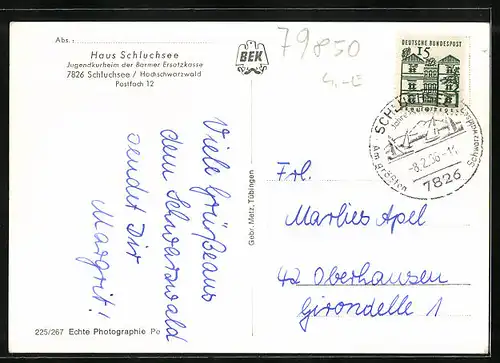 Abs.:
Haus Schluchsee
Jugendkurheim der Barmer Ersatzkasse
7826 Schluchsee / Hochschwarzwald
Postfach 12
BEK
79850
4,-E
DEUTSCHE BUNDESPOST
15
-8.2.66-
7826
Viele Grüße aus
dem Schwarzwald
sendet Dir
Margrit!
Gebr. Metz, Tübingen
Frl.
Marlies Apel
42 Oberhausen
Girondelle 1
225/267 Echte Photographie